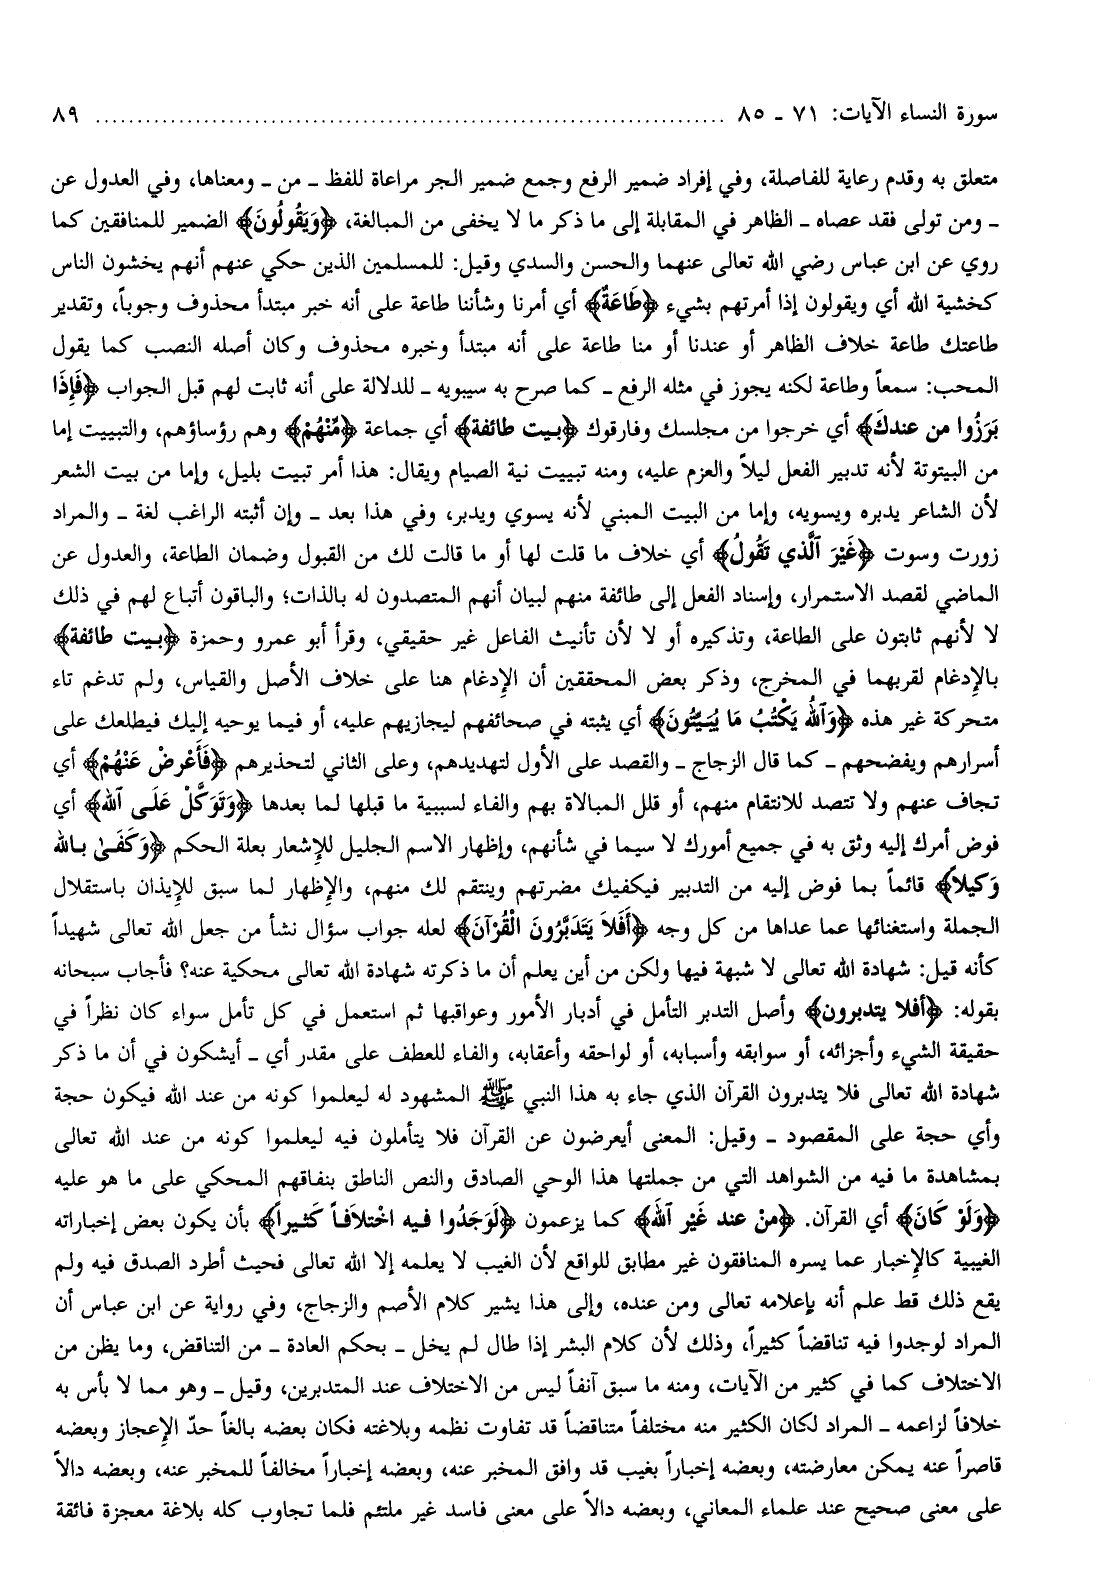 سورة النساء الآيات: ٧١ ـ ٨٥ ................................................................ ٨٩
متعلق به وقدم رعاية للفاصلة، وفي إفراد ضمير الرفع وجمع ضمير الجر مراعاة للفظ ـ من ـ ومعناها، وفي العدول عن
ـ ومن تولى فقد عصاه ـ الظاهر في المقابلة إلى ما ذكر ما لا يخفى من المبالغة، ﴿وَيَقُولُونَ﴾ الضمير للمنافقين كما
روي عن ابن عباس رضي الله تعالى عنهما والحسن والسدي وقيل: للمسلمين الذين حكي عنهم أنهم يخشون الناس
كخشية الله أي ويقولون إذا أمرتهم بشيء ﴿طَاعَةٌ﴾ أي أمرنا وشأننا طاعة على أنه خبر مبتدأ محذوف وجوباً، وتقدير
طاعتك طاعة خلاف الظاهر أو عندنا أو منا طاعة على أنه مبتدأ وخبره محذوف وكان أصله النصب كما يقول
المحب: سمعاً وطاعة لكنه يجوز في مثله الرفع ـ كما صرح به سيبويه ـ للدلالة على أنه ثابت لهم قبل الجواب ﴿فَإِذَا
بَرَزُوا من عندكَ﴾ أي خرجوا من مجلسك وفارقوك ﴿بيت طائفة﴾ أي جماعة ﴿مِّنْهُمْ﴾ وهم رؤساؤهم، والتبييت إما
من البيتوتة لأنه تدبير الفعل ليلاً والعزم عليه، ومنه تبييت نية الصيام ويقال: هذا أمر تبيت بليل، وإما من بيت الشعر
لأن الشاعر يدبره ويسويه، وإما من البيت المبني لأنه يسوي ويدبر، وفي هذا بعد ـ وإن أثبته الراغب لغة ـ والمراد
زورت وسوت ﴿غَيْرَ ٱلَّذي تَقُولُ﴾ أي خلاف ما قلت لها أو ما قالت لك من القبول وضمان الطاعة، والعدول عن
الماضي لقصد الاستمرار، وإسناد الفعل إلى طائفة منهم لبيان أنهم المتصدون له بالذات؛ والباقون أتباع لهم في ذلك
لا لأنهم ثابتون على الطاعة، وتذكيره أو لا لأن تأنيث الفاعل غير حقيقي، وقرأ أبو عمرو وحمزة ﴿بيت طائفة﴾
بالإدغام لقربهما في المخرج، وذكر بعض المحققين أن الإدغام هنا على خلاف الأصل والقياس، ولم تدغم تاء
متحركة غير هذه ﴿وَٱللهُ يَكْتُبُ مَا يُبَيِّتُونَ﴾ أي يثبته في صحائفهم ليجازيهم عليه، أو فيما يوحيه إليك فيطلعك على
أسرارهم ويفضحهم ـ كما قال الزجاج ـ والقصد على الأول لتهديدهم، وعلى الثاني لتحذيرهم ﴿فَأَعْرضْ عَنْهُمْ﴾ أي
تجاف عنهم ولا تتصد للانتقام منهم، أو قلل المبالاة بهم والفاء لسببية ما قبلها لما بعدها ﴿وَتَوَكَّلْ عَلَى ٱلله﴾ أي
فوض أمرك إليه وثق به في جميع أمورك لا سيما في شأنهم، وإظهار الاسم الجليل للإشعار بعلة الحكم ﴿وَكَفَىٰ بالله
وَكيلاً﴾ قائماً بما فوض إليه من التدبير فيكفيك مضرتهم وينتقم لك منهم، والإظهار لما سبق للإيذان باستقلال
الجملة واستغنائها عما عداها من كل وجه ﴿أَفَلاَ يَتَدَبَّرُونَ الْقُرْآنَ﴾ لعله جواب سؤال نشأ من جعل الله تعالى شهيداً
كأنه قيل: شهادة الله تعالى لا شبهة فيها ولكن من أين يعلم أن ما ذكرته شهادة الله تعالى محكية عنه؟ فأجاب سبحانه
بقوله: ﴿أفلا يتدبرون﴾ وأصل التدبر التأمل في أدبار الأمور وعواقبها ثم استعمل في كل تأمل سواء كان نظراً في
حقيقة الشيء وأجزائه، أو سوابقه وأسبابه، أو لواحقه وأعقابه، والفاء للعطف على مقدر أي ـ أيشكون في أن ما ذكر
شهادة الله تعالى فلا يتدبرون القرآن الذي جاء به هذا النبي ﷺ المشهود له ليعلموا كونه من عند الله فيكون حجة
وأي حجة على المقصود ـ وقيل: المعنى أيعرضون عن القرآن فلا يتأملون فيه ليعلموا كونه من عند الله تعالى
بمشاهدة ما فيه من الشواهد التي من جملتها هذا الوحي الصادق والنص الناطق بنفاقهم المحكي على ما هو عليه
﴿وَلَوْ كَانَ﴾ أي القرآن. ﴿منْ عند غَيْر ٱلله﴾ كما يزعمون ﴿لَوَجَدُوا فيه اخْتلاَفاً كَثيراً﴾ بأن يكون بعض إخباراته
الغيبية كالإخبار عما يسره المنافقون غير مطابق للواقع لأن الغيب لا يعلمه إلا الله تعالى فحيث أطرد الصدق فيه ولم
يقع ذلك قط علم أنه بإعلامه تعالى ومن عنده، وإلى هذا يشير كلام الأصم والزجاج، وفي رواية عن ابن عباس أن
المراد لوجدوا فيه تناقضاً كثيراً، وذلك لأن كلام البشر إذا طال لم يخل ـ بحكم العادة ـ من التناقض، وما يظن من
الاختلاف كما في كثير من الآيات، ومنه ما سبق آنفاً ليس من الاختلاف عند المتدبرين، وقيل ـ وهو مما لا بأس به
خلافاً لزاعمه ـ المراد لكان الكثير منه مختلفاً متناقضاً قد تفاوت نظمه وبلاغته فكان بعضه بالغاً حدّ الإعجاز وبعضه
قاصراً عنه يمكن معارضته، وبعضه إخباراً بغيب قد وافق المخبر عنه، وبعضه إخباراً مخالفاً للمخبر عنه، وبعضه دالاً
على معنى صحيح عند علماء المعاني، وبعضه دالاً على معنى فاسد غير ملتئم فلما تجاوب كله بلاغة معجزة فائقة